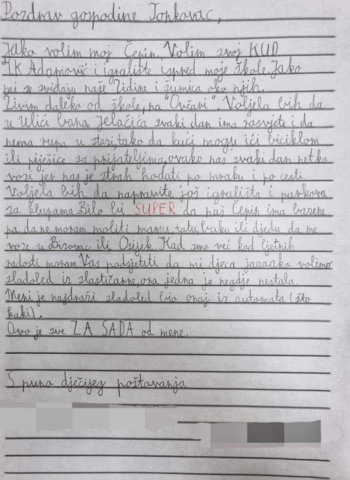 Pozdrav gospodine Tonkovac,
Jako volim moj Čepin. Volim svoj KUD
"IK Adamović i igralište ispred moje škole. Jako
mi se sviđaju naše Zidine i šumica oko njih.
Živim daleko od škole, na "Ovčari". Voljela bih da
u Ulici bana Jelačića svaki dan ima rasvjete i da
nema rupa u da kući mogu ići biciklom
ili pješice sa prijateljima, ovako nas svaki dan netko
vozi jer nas je strah hodati po mraku i po cesti.
Voljela bih da napravite još igrališta i parkova
sa klupama. Bilo bi SUPER da naš Čepin ima bazene
pa da ne moram moliti mamu, tatu, baku ili djedu da me
voze u Bizovac ili Osijek. Kad smo već kod ljetnih
radosti moram Vas podsjetiti da mi djeca jaaaako volimo
sladoled iz slastičarne, ona jedna je negdje nestala.
Meni je najdraži sladoled bio onaj iz automata (što
kaki).
Ovo je sve ZA SADA od mene.
S puno dječjeg poštovanja